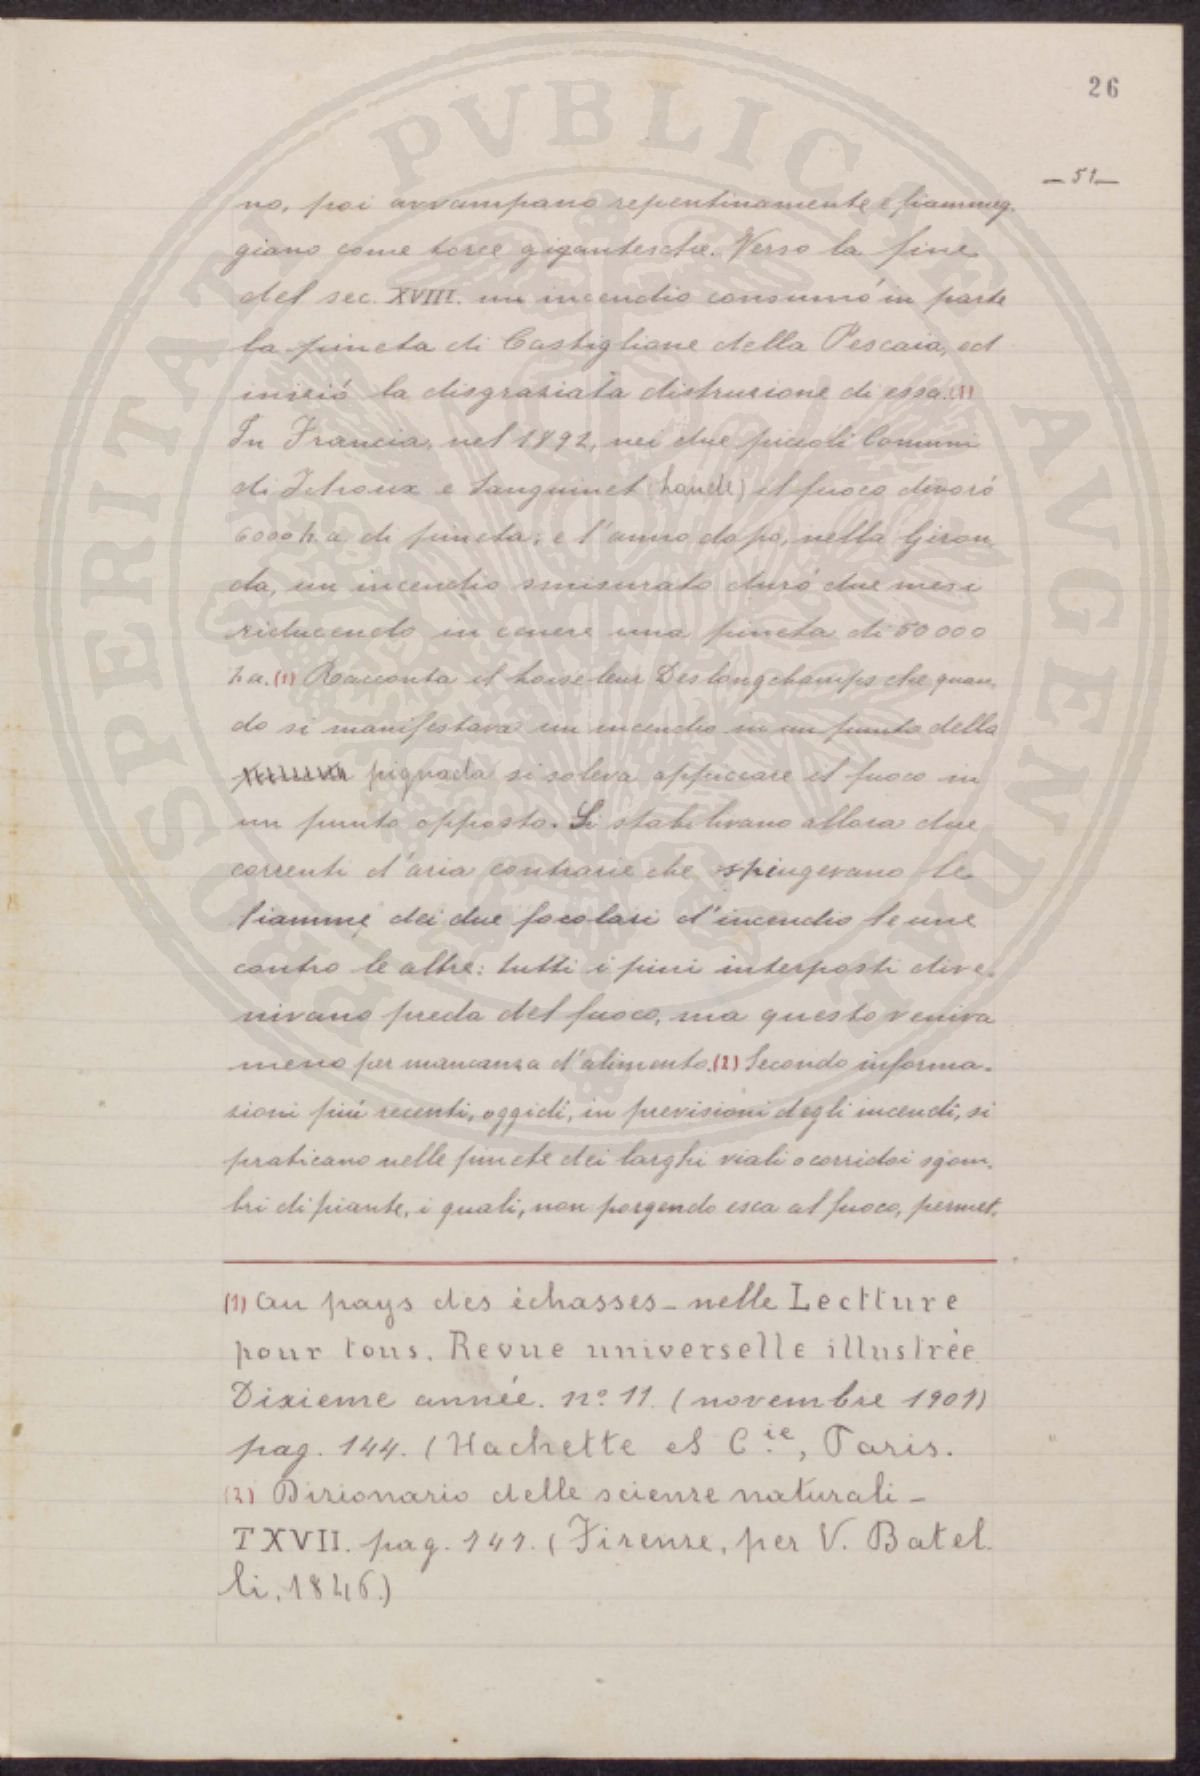 26
— 51 —
no, poi avvampano repentinamente e fiammeg-
giano come torce gigantesche. Verso la fine
del sec. XVIII. un incendio consumó in parte
la pineta di Castiglione della Pescaia, ed
iniziò la disgraziata distruzione di essa. (1)
In Francia, nel 1892, nei due piccoli Comuni
di Ichoux e Sanguinet (Lande) il fuoco divoró
6000 h.a di pineta; e l'anno dopo, nella Giron
da, un incendio smisurato duró due mesi
riducendo in cenere una pineta di 50000
h a. (1) Racconta il Loiseleur Deslongchamps che quan-
do si manifestava un incendio in un punto della
pignada si soleva appiccare il fuoco in
un punto opposto. Si stabilivano allora due
correnti d'aria contrarie che spingevano le
fiamme dei due focolari d'incendio le une
contro le altre: tutti i pini interposti dive-
nivano preda del fuoco, ma questo veniva
meno per mancanza d'alimento. (2) Secondo informa-
zioni piú recenti, oggidí, in previsioni degli incendî, si
praticano nelle pinete dei larghi viali o corridoi sgom-
bri di piante, i quali, non porgendo esca al fuoco, permet-
(1) Au pays des échasses - nelle Lectture
pour tous. Revue universelle illustrée
Dixieme année. n.º 11. (novembre 1901)
pag. 144. (Hachette et C.ie, Paris.
(2) Dizionario delle scienze naturali -
T XVII. pag. 141. (Firenze, per V. Batel
li, 1846.)
PROSPERITATI PVBLICAE AVGENDAE